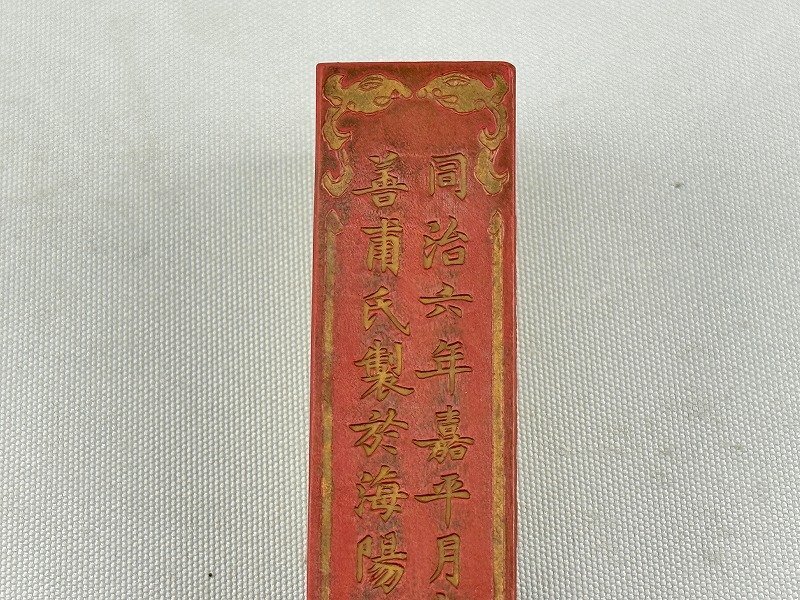 同治六年嘉平月
善甫氏製於海陽